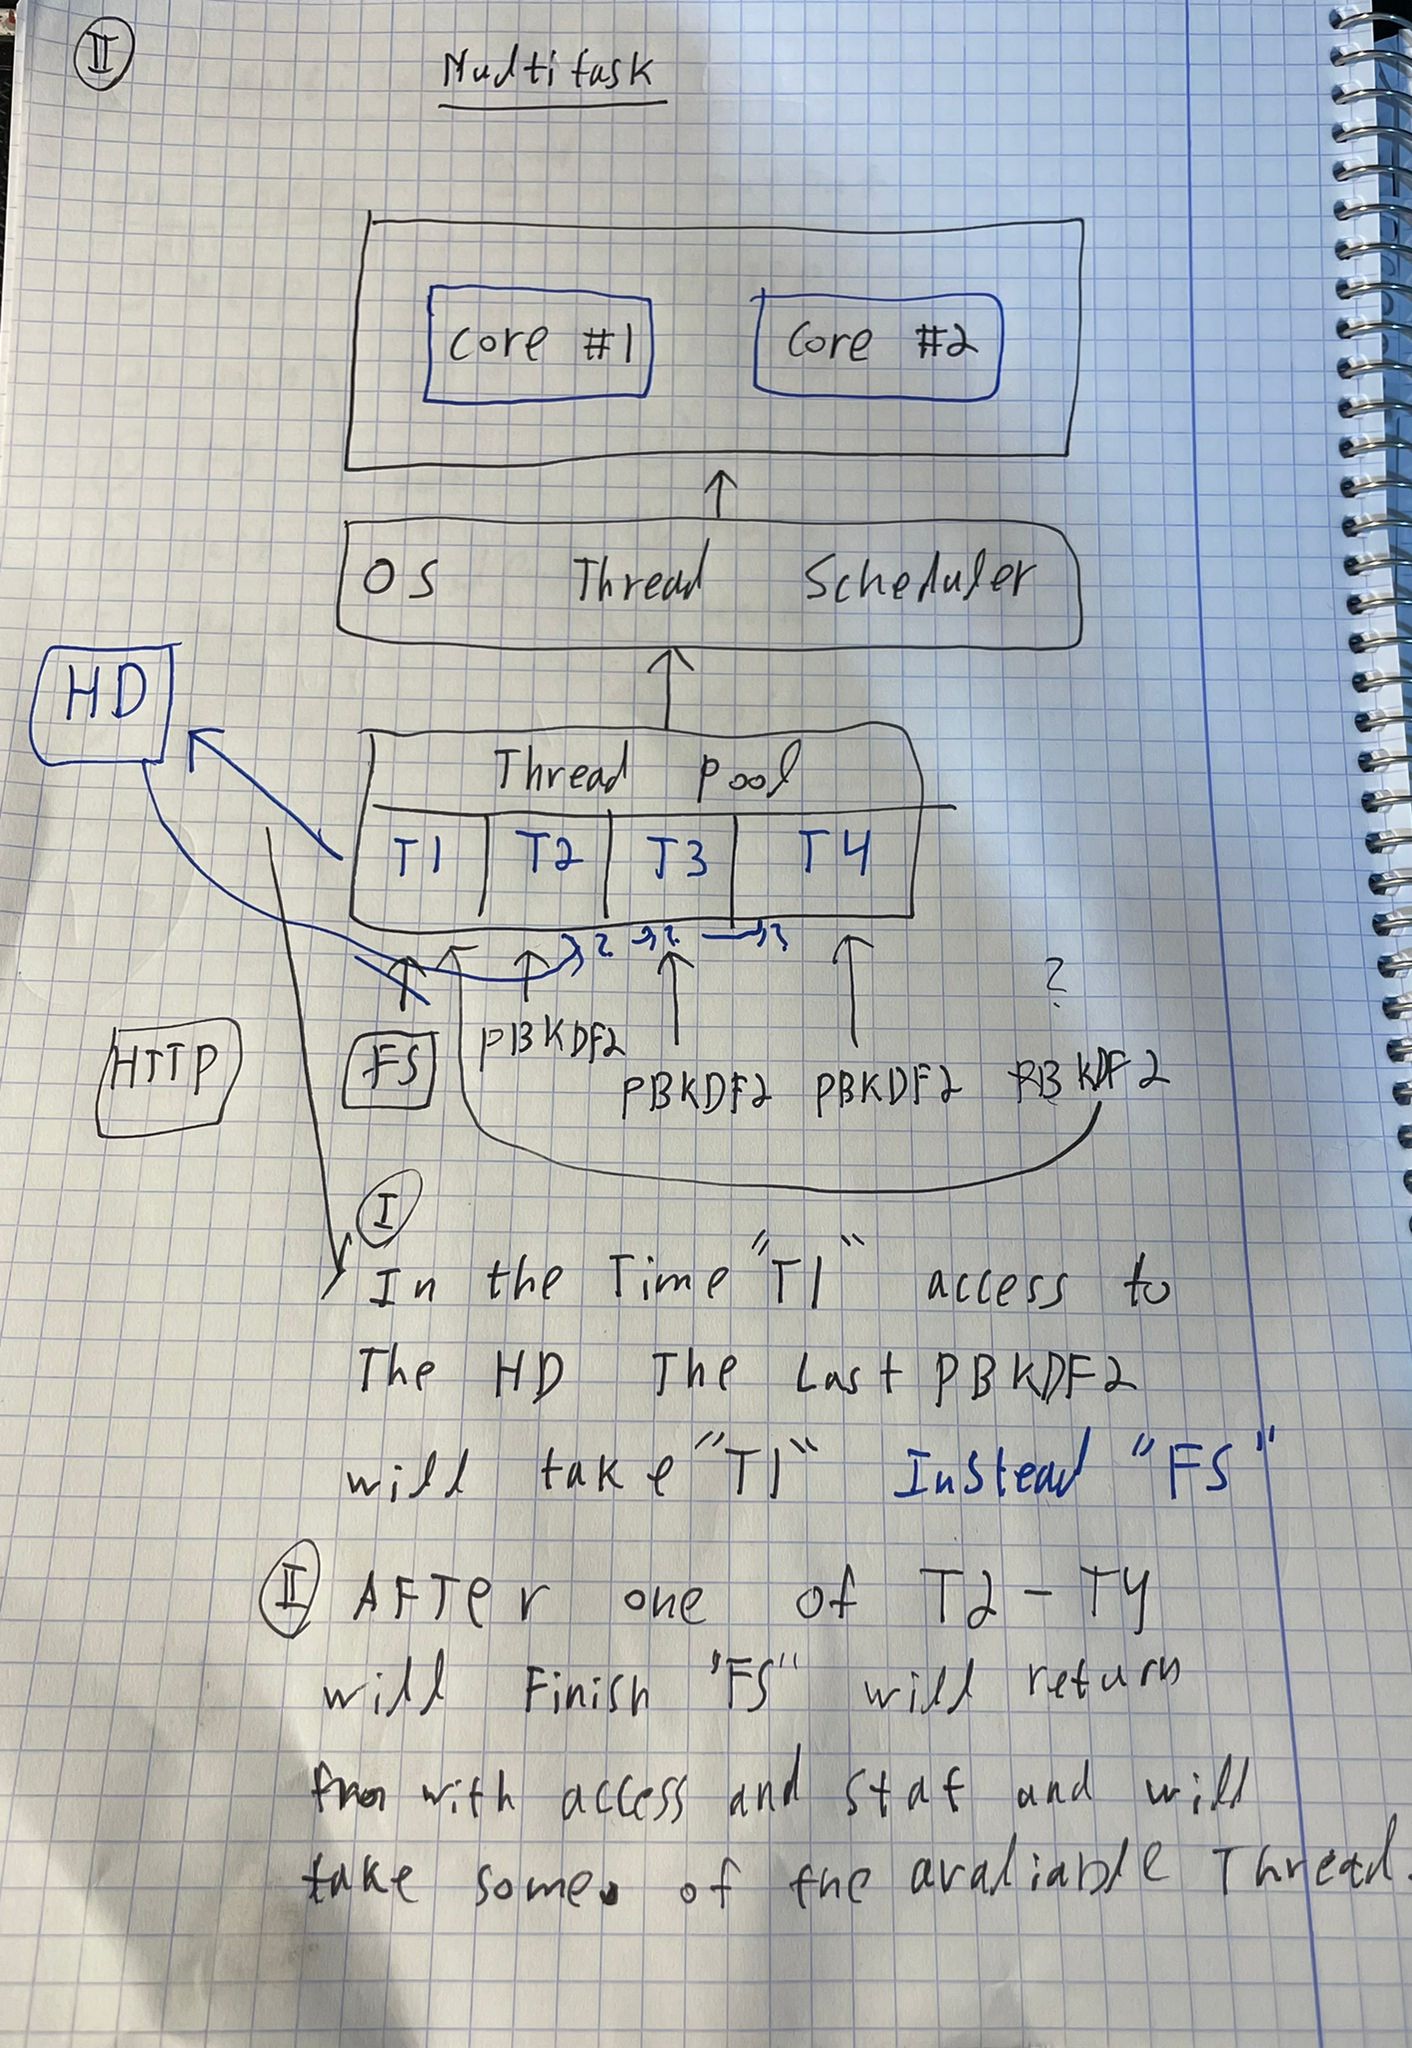 II
Multitask
Core #1
Core #2
OS Thread Scheduler
HD
Thread Pool
T1 T2 T3 T4
? ? ?
?
HTTP
FS
PBKDF2
PBKDF2 PBKDF2 PBKDF2
I
In the Time "T1" access to
The HD The Last PBKDF2
will take "T1" Instead "FS"
II AFTer one of T2-T4
will Finish "FS" will return
with access and stat and will
take some of the avaliable Thread.